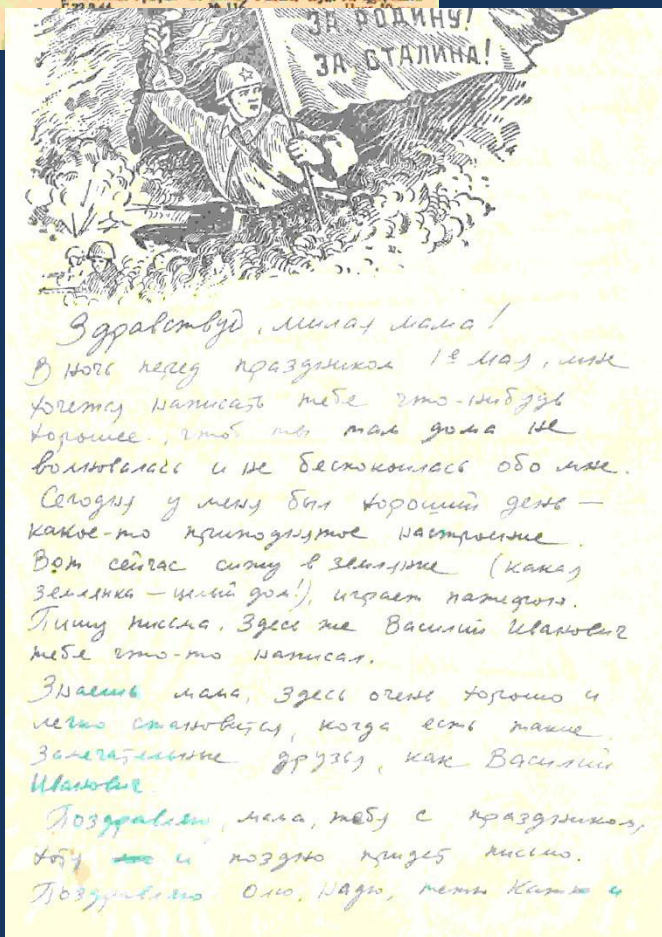 № 117
ЗА РОДИНУ!
ЗА СТАЛИНА!
Здравствуй, милая мама!
В ночь перед праздником 1е мая, мне
хочется написать тебе что-нибудь
хорошее, чтоб ты там дома не
волновалась и не беспокоилась обо мне.
Сегодня у меня был хороший день –
какое-то приподнятое настроение.
Вот сейчас сижу в землянке (какая
землянка – целый дом!), играет патефон.
Пишу письма. Здесь же Василий Иванович
тебе что-то написал.
Знаешь мама, здесь очень хорошо и
легко становится, когда есть такие
замечательные друзья, как Василий
Иванович
Поздравляю, мама, тебя с праздником,
хотя и поздно придет письмо.
Поздравляю Олю, Надю, тетю Катю и